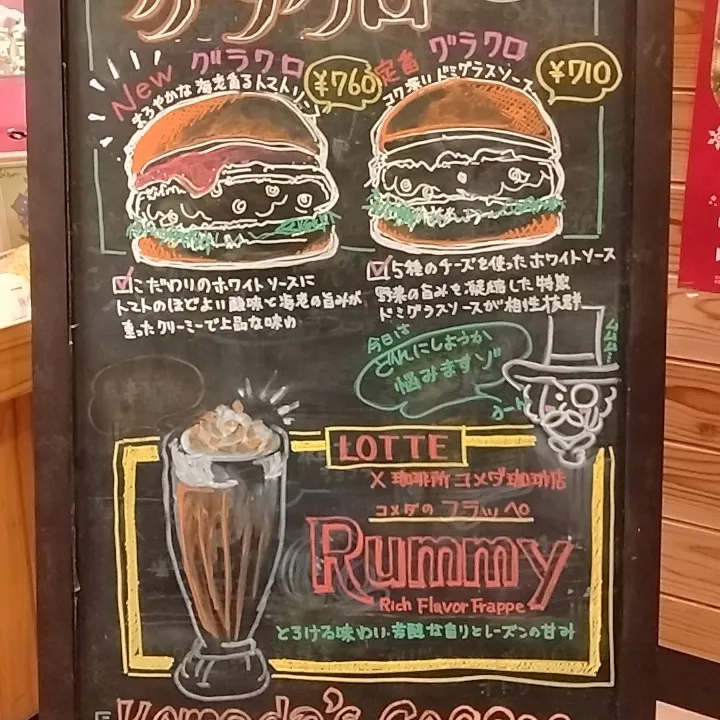 グラクロ
New グラクロ ¥760
まろやかな海老香るトマト
定番 グラクロ ¥710
コク深いドミグラスソース
こだわりのホワイトソースに
トマトのほどよい酸味と海老の旨みが
重ったクリーミーで上品な味わ
5種のチーズを使ったホワイトソース
野菜の旨みを凝縮した特製
ドミグラスソースが相性抜群
今日は
どれにしようか
悩みますゾ
LOTTE
× 珈琲所 コメダ珈琲店
コメダの フラッペ
Rummy
Rich Flavor Frappe
とろける味わい・芳醇な香りとレーズンの甘み
Komeda's Coffee